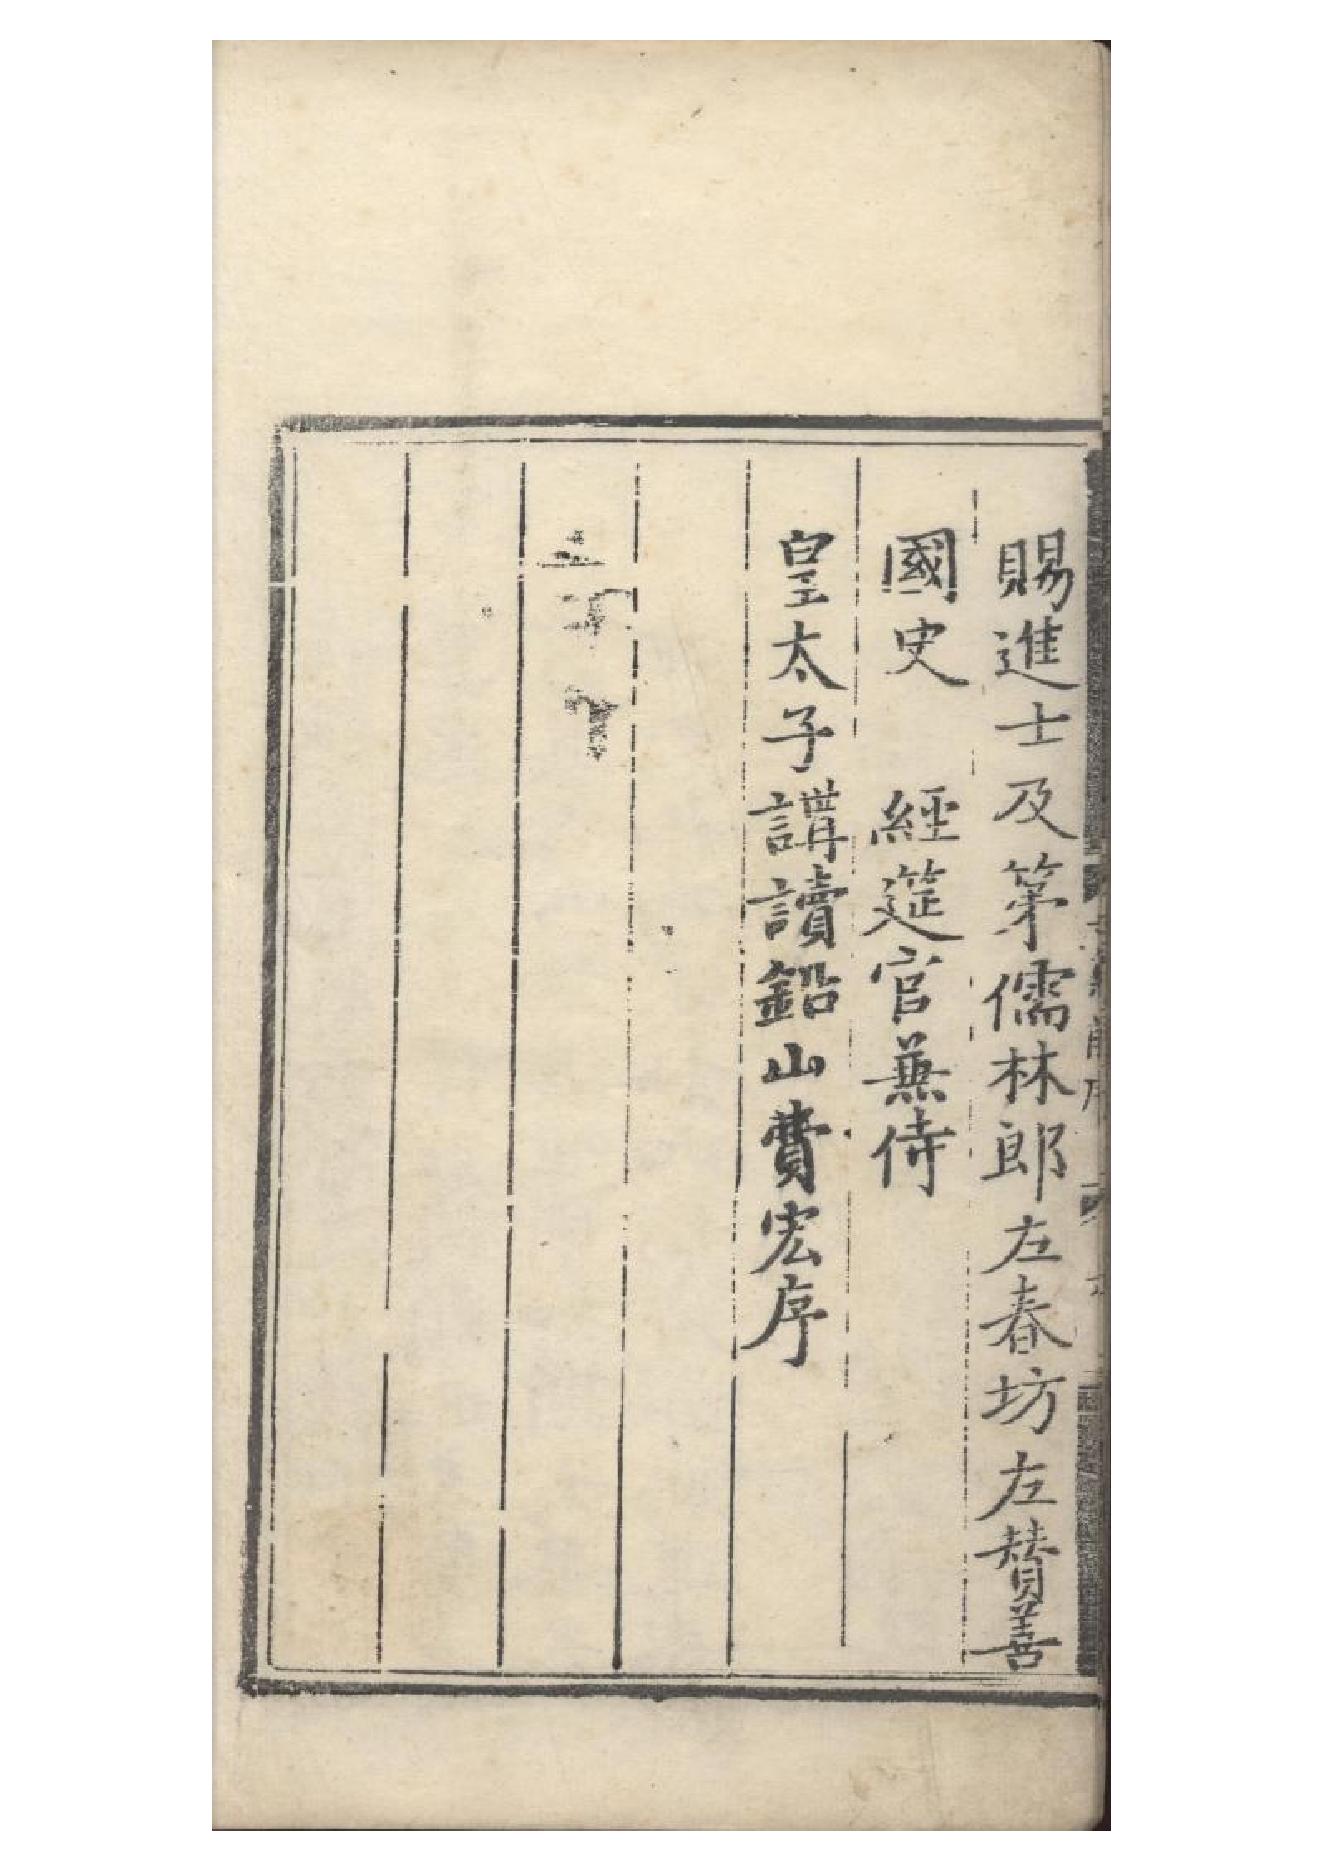 賜進士及第儒林郎左春坊左贊善
國史　經筵官兼侍
皇太子講讀鉛山費宏序